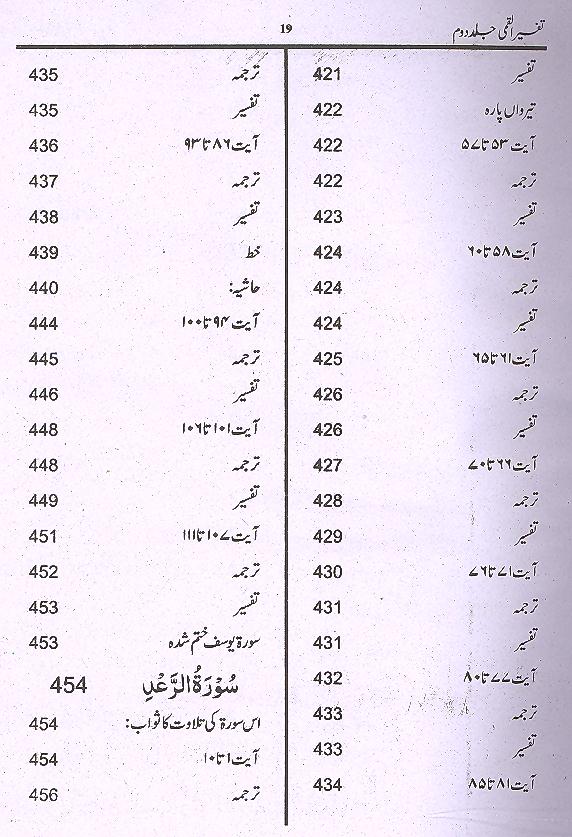 تفسیر القمی جلد دوم
19
تفسیر 421
تیرواں پارہ 422
آیت ۵۳ تا ۵۷ 422
ترجمہ 422
تفسیر 423
آیت ۵۸ تا ۶۰ 424
ترجمہ 424
تفسیر 424
آیت ۶۱ تا ۶۵ 425
ترجمہ 426
تفسیر 426
آیت ۶۶ تا ۷۰ 427
ترجمہ 428
تفسیر 429
آیت ۷۱ تا ۷۶ 430
ترجمہ 431
تفسیر 431
آیت ۷۷ تا ۸۰ 432
ترجمہ 433
تفسیر 433
آیت ۸۱ تا ۸۵ 434
ترجمہ 435
تفسیر 435
آیت ۸۶ تا ۹۳ 436
ترجمہ 437
تفسیر 438
خط 439
حاشیہ: 440
آیت ۹۴ تا ۱۰۰ 444
ترجمہ 445
تفسیر 446
آیت ۱۰۱ تا ۱۰۶ 448
ترجمہ 448
تفسیر 449
آیت ۱۰۷ تا ۱۱۱ 451
ترجمہ 452
تفسیر 453
سورۃ یوسف ختم شدہ 453
سُوْرَۃُ الرَّعْدِ 454
اس سورۃ کی تلاوت کا ثواب: 454
آیت ۱ تا ۱۰ 454
ترجمہ 456